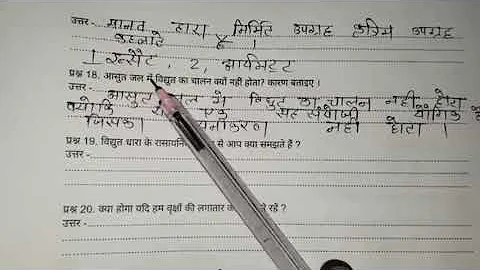 उत्तर - मानव द्वारा निर्मित उपग्रह कृत्रिम उपग्रह
कहलाते है ।
1 इन्सैट , 2, आर्यभट्ट
प्रश्न 18. आसुत जल में विद्युत का चालन क्यों नहीं होता? कारण बताइए ।
उत्तर - आसुत जल मे विद्युत का चालन नही होता
क्योंकि एक सहसंयोजी यौगिक है
जिसका नही होता ।
प्रश्न 19. विद्युत धारा के रासायनि से आप क्या समझते हैं ?
उत्तर -
प्रश्न 20. क्या होगा यदि हम वृक्षों की लगातार रहें ?
उत्तर -